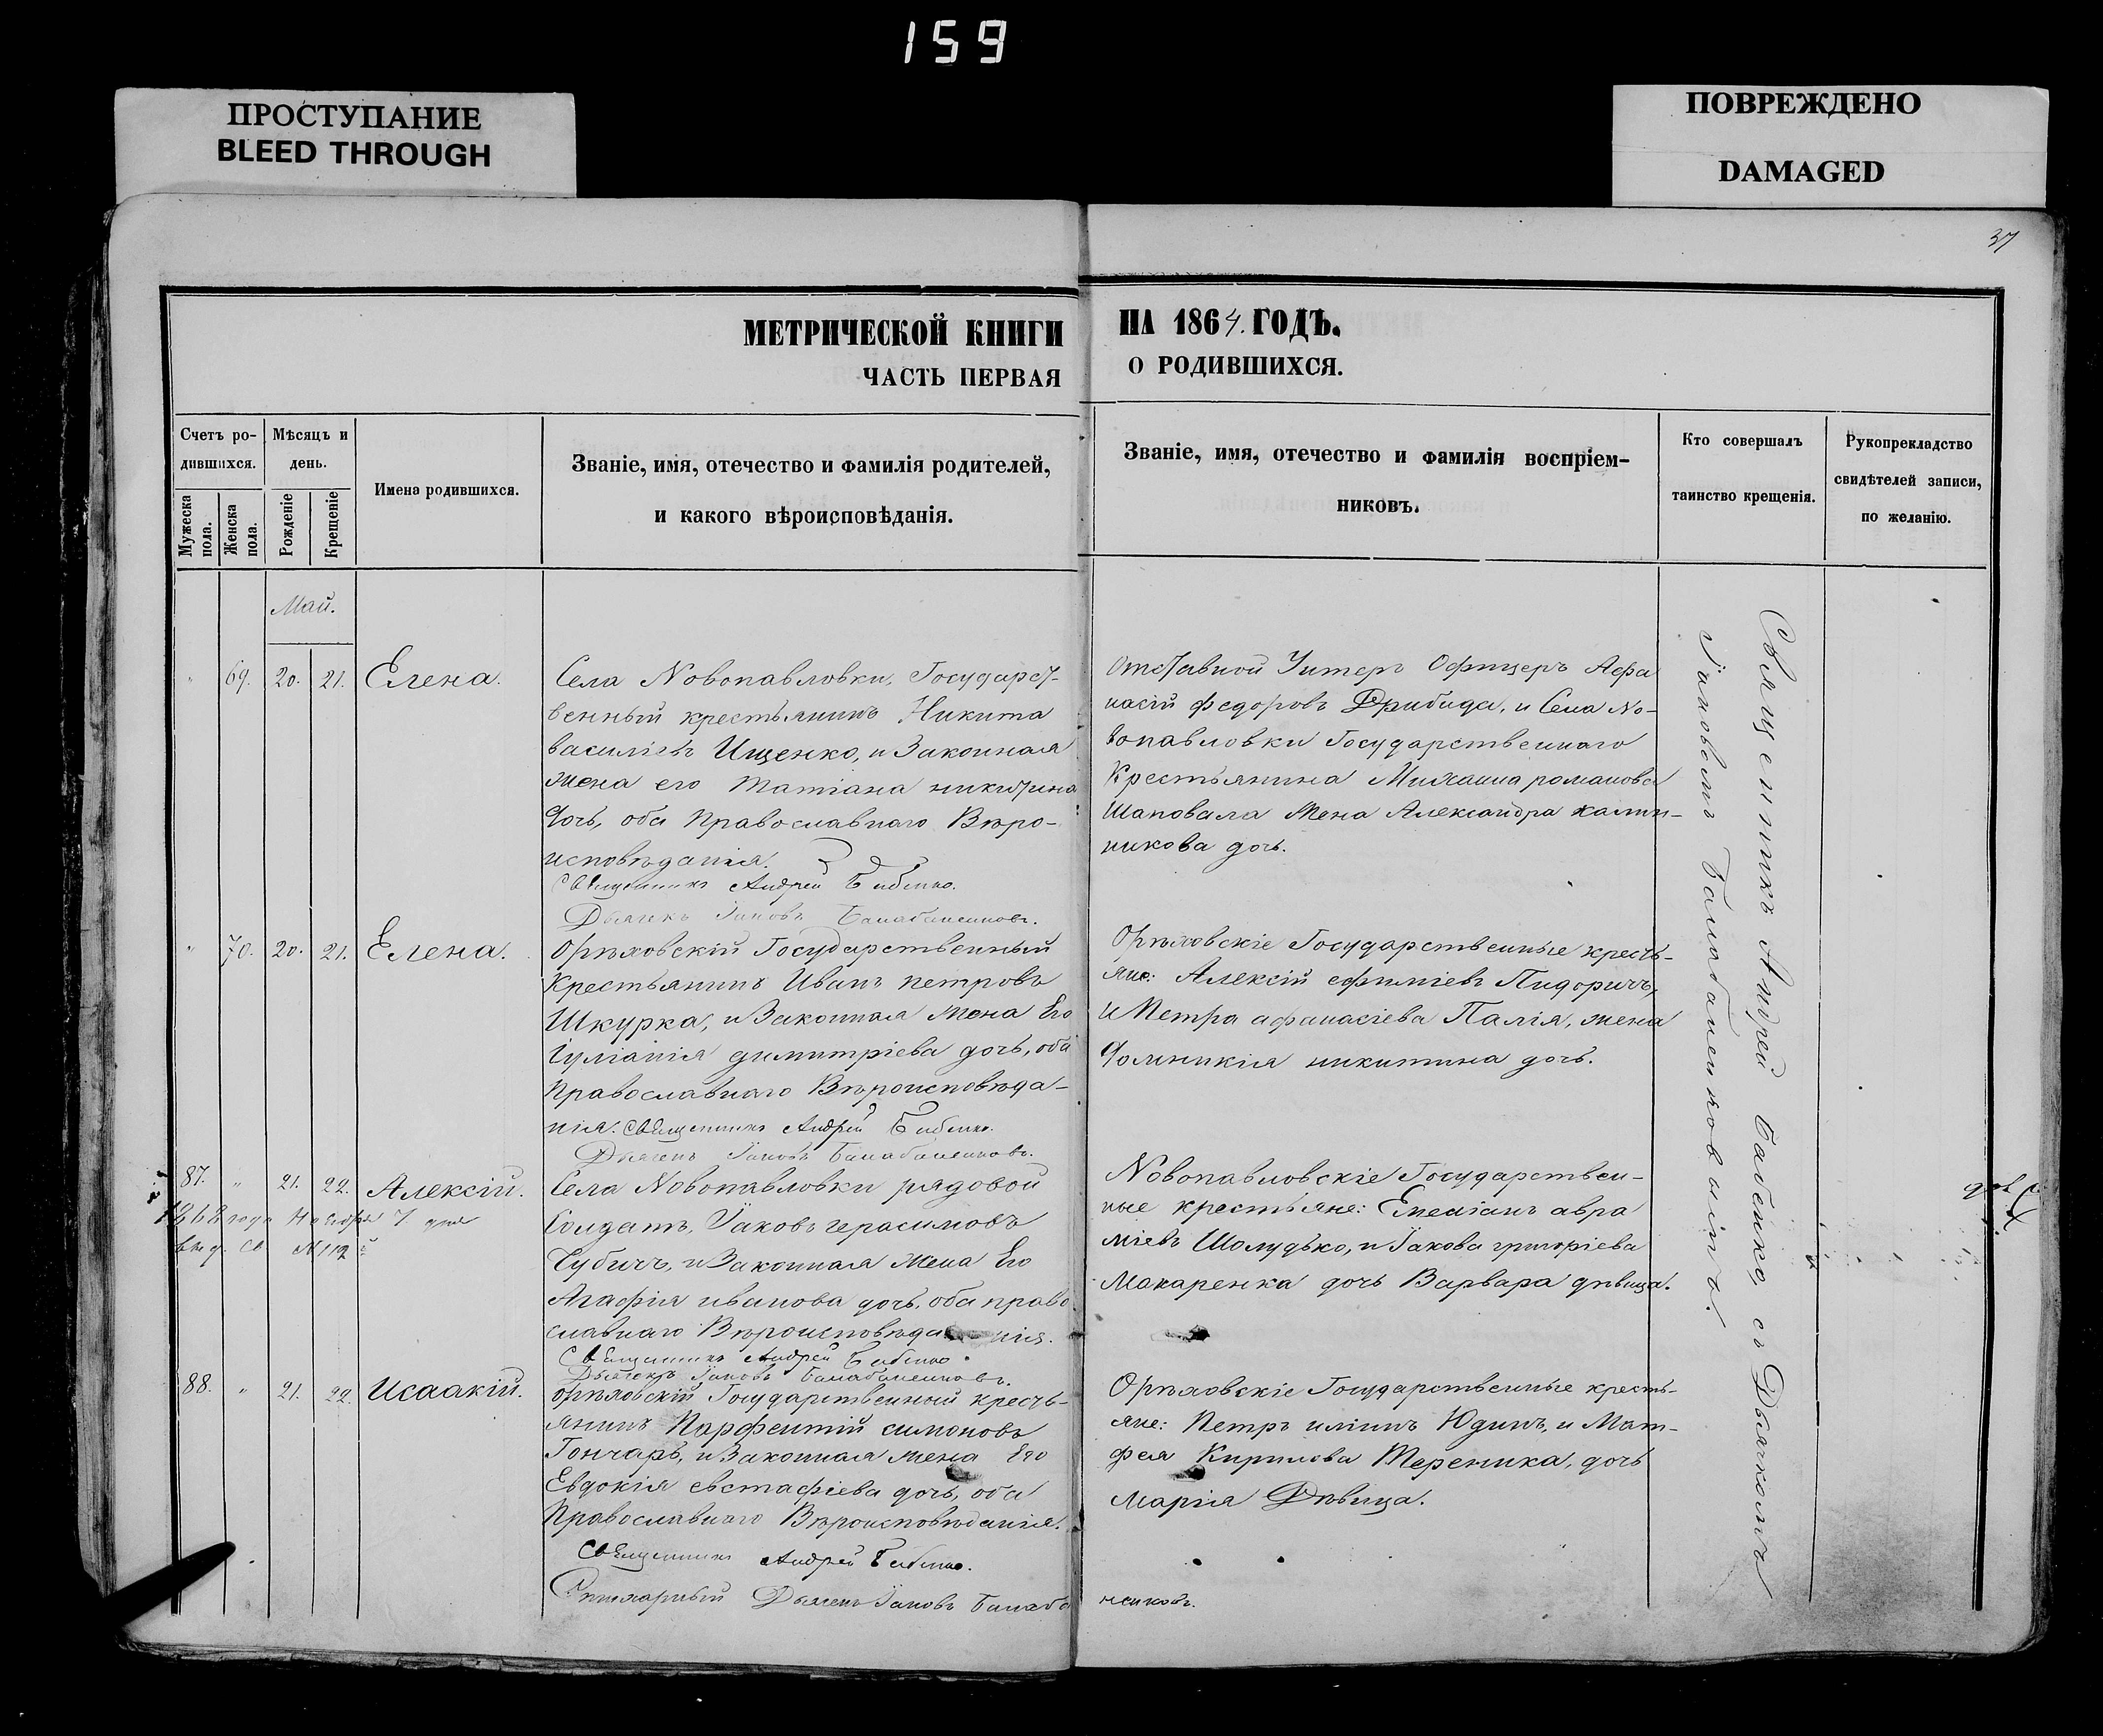 159
ПРОСТУПАНИЕ
BLEED THROUGH
ПОВРЕЖДЕНО
DAMAGED
37
МЕТРИЧЕСКОЙ КНИГИ НА 1864. ГОДЪ.
ЧАСТЬ ПЕРВАЯ О РОДИВШИХСЯ.
Счетъ ро-
дившихся.
Мужеска пола.
Женска пола.
Мѣсяцъ и
день.
Рожденіе
Крещеніе
Имена родившихся.
Званіе, имя, отечество и фамилія родителей,
и какого вѣроисповѣданія.
Званіе, имя, отечество и фамилія воспріем-
никовъ.
Кто совершалъ
таинство крещенія.
Рукоприкладство
свидѣтелей записи,
по желанію.
Май.
" 69. 20. 21. Елена.
Села Новопавловки, Государст-
венный крестьянинъ Никита
василіевъ Ищенко, и Законная
жена его Татіана никитина
дочь, оба Православнаго Вѣро-
исповѣданія.
Священникъ Андрей Бабенко.
Дьячекъ Іаковъ Балабаненковъ.
Отставной Унтеръ Офицеръ Афа
насій федоровъ Дрибида, и Села Но-
вопавловки Государственнаго
Крестьянина Михаила романова
Шаповала жена Александра калин-
никова дочь.
" 70. 20. 21. Елена.
Орѣховскій Государственный
Крестьянинъ Иванъ петровъ
Шкурка, и Законная жена Его
Іуліанія димитріева дочь, оба
Православнаго Вѣроисповѣда-
нія. Священникъ Андрей Бабенко.
Дьячекъ Іаковъ Балабаненковъ.
Орѣховскіе Государственные кресть-
яне: Алексій ефиміевъ Пидоричъ,
и Петра афанасіева Палія, жена
Домникія никитина дочь.
87. " 21. 22. Алексій.
года Ноября 7 дня
выд. св. №112
Села Новопавловки рядовой
Солдатъ, Іаковъ герасимовъ
Чубичъ, и Законная жена Его
Агафія иванова дочь, оба право
славнаго Вѣроисповѣданія.
Священникъ Андрей Бабенко.
Дьячекъ Іаковъ Балабаненковъ.
Новопавловскіе Государствен-
ные крестьяне: Емеліанъ авра
міевъ Шолудько, и Іакова григоріева
Макаренка дочь Варвара дѣвица.
88. " 21. 22. Исаакій.
Орѣховскій Государственный кресть-
янинъ Парфентій симоновъ
Гончаръ, и Законная жена Его
Евдокія евстафіева дочь, оба
Православнаго Вѣроисповѣданія.
Священникъ Андрей Бабенко.
Дьячекъ Іаковъ Балаба
ненковъ.
Орѣховскіе Государственные кресть-
яне: Петръ иліинъ Юдинъ, и Мат-
фея Кирилова Тереника, дочь
Марія Дѣвица.
Священникъ Андрей Бабенко, съ Дьячкомъ
Іаковомъ Балабаненковымъ.